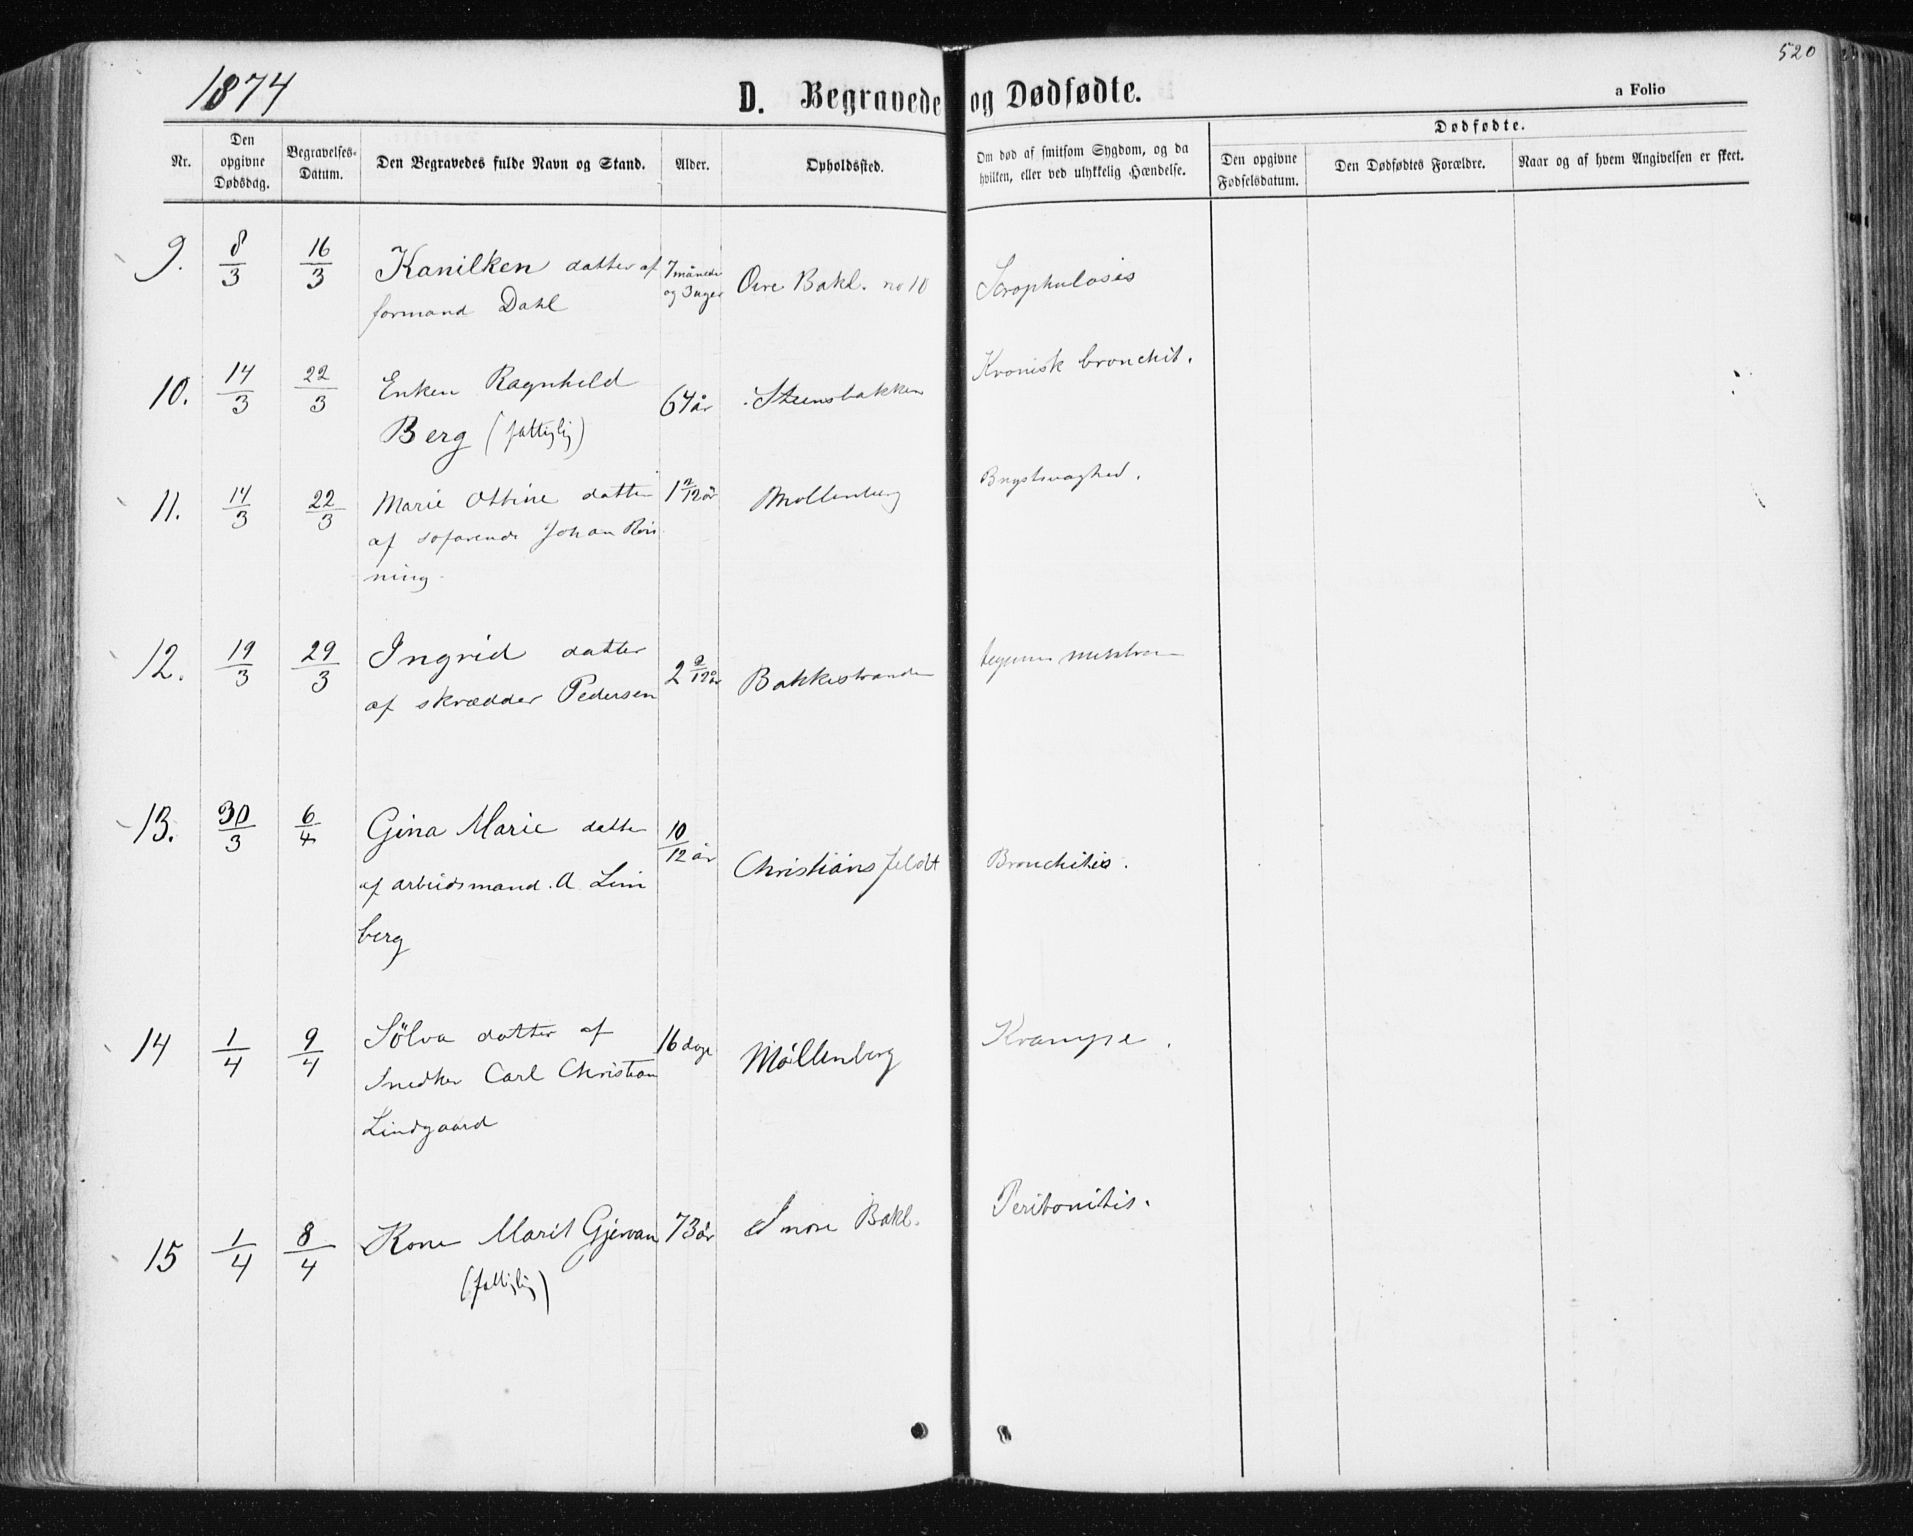 520
1874
D. Begravede og Dødfødte.
a Folio
Nr.
Den opgivne Dødsdag.
Begravelses-Datum.
Den Begravedes fulde Navn og Stand.
Alder.
Opholdssted.
Om død af smitsom Sygdom, og da hvilken, eller ved ulykkelig Hændelse.
Dødfødte.
Den opgivne Fødselsdatum.
Den Dødfødtes Forældre.
Naar og af hvem Angivelsen er skeet.
9. 8/3 16/3 Kanilken datter af 7 månede
formand Dahl og 3 uger Øvre Bakl. no 10 Scrophulosis
10. 14/3 22/3 Enken Ragnhild 67 år Steensbakken Kronisk bronchit.
Berg (fattiglig)
11. 14/3 22/3 Marie Ottine datter 1 2/12 år Mollenberg Brystsvaghed.
af søfarende Johan
ning
12. 19/3 29/3 Ingrid datter 2 9/12 år Bakkestranden
af skrædder Pedersen
13. 30/3 6/4 Gina Marie datter 10/12 år Christiansfeldt Bronchitis.
af arbeidsmand A. Lim
berg
14 1/4 9/4 Sölva datter af 16 dage Möllenberg Krampe.
Snedker Carl Christian
Lindgaard
15 1/4 8/4 Kone Marit Gjervan 73 år Bakl. Peritonitis.
(fattiglig)